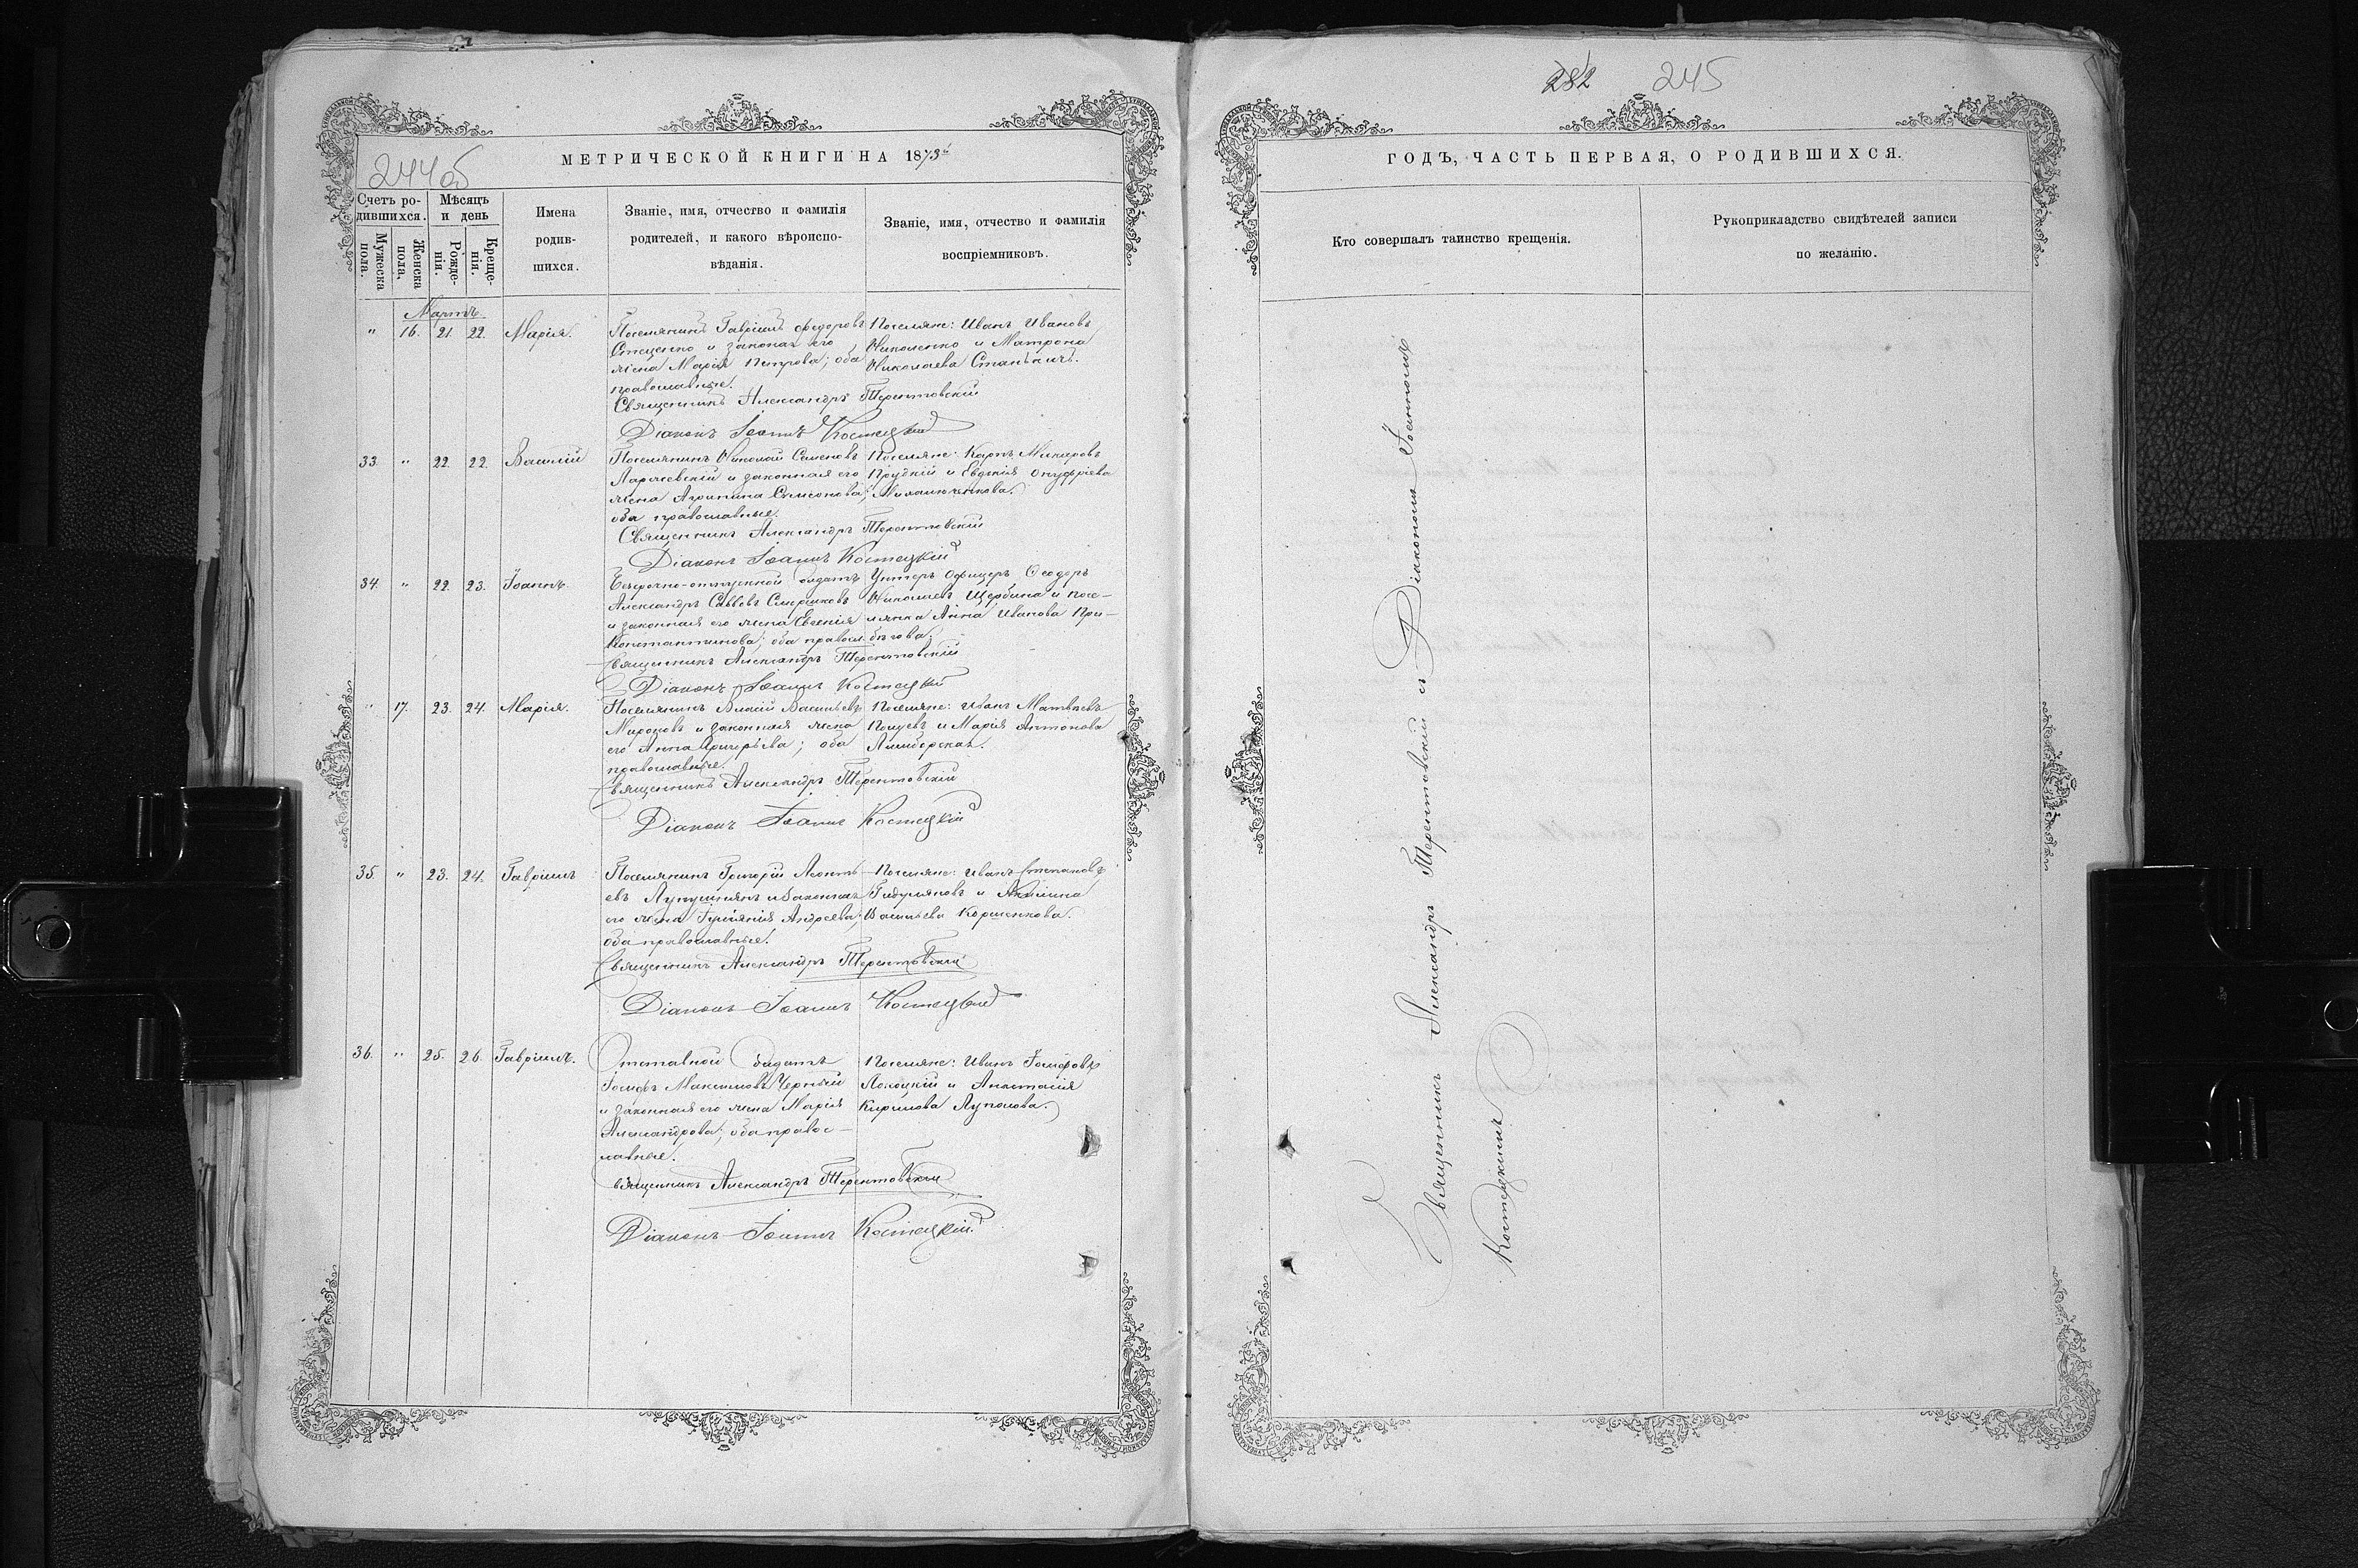 244об
МЕТРИЧЕСКОЙ КНИГИ НА 1873й
Счетъ ро-
дившихся.
Мужеска
пола.
Женска
пола.
Мѣсяцъ
и день
Рожде-
нія.
Креще-
нія.
Имена
родив-
шихся.
Званіе, имя, отчество и фамилія
родителей, и какого вѣроиспо-
вѣданія.
Званіе, имя, отчество и фамилія
воспріемниковъ.
Мартъ
" 16. 21. 22. Марія.
Поселянинъ Гавріилъ Ѳедоровъ
Стеценко и законная его
жена Марія Петрова; оба
православные.
Поселяне: Иванъ Ивановъ
Николенко и Матрона
Николаева
Священникъ Александръ Терентовскій
Діаконъ Іоаннъ Костецкій
33. " 22. 22. Василій
Поселянинъ Николай Семеновъ
и законная его
жена Агрипина Симеонова;
оба православные.
Поселяне: Карпъ
и Евдокія Онуфріева
Священникъ Александръ Терентовскій
Діаконъ Іоаннъ Костецкій
34. " 22. 23. Іоаннъ.
Безсрочно-отпускной солдатъ
Александръ Саввовъ
и законная его жена Евгенія
Константинова; оба правосл.
Унтеръ Офицеръ Ѳеодоръ
Николаевъ Щербина и посе-
лянка Анна Иванова При-
бѣгова.
Священникъ Александръ Терентовскій
Діаконъ Іоаннъ Костецкій
" 17. 23. 24. Марія.
Поселянинъ Власій Васильевъ
Мироновъ и законная жена
его Анна Григорьева; оба
православные.
Поселяне: Иванъ Матвѣевъ
и Марія Антонова
Священникъ Александръ Терентовскій
Діаконъ Іоаннъ Костецкій
35. " 23. 24. Гавріилъ
Поселянинъ Григорій Леонть-
евъ и законная
его жена Андреева;
оба православные.
Поселяне: Иванъ Степановъ
и
Васильева
Священникъ Александръ Терентовскій
Діаконъ Іоаннъ Костецкій
36. " 25. 26. Гавріилъ.
Отставной солдатъ
Іосифъ Максимовъ Черный
и законная его жена Марія
Александрова; оба правос-
лавные.
Поселяне: Иванъ Іосифовъ
и Анастасія
Кирилова Луполова.
Священникъ Александръ Терентовскій
Діаконъ Іоаннъ Костецкій.
282 245
ГОДЪ, ЧАСТЬ ПЕРВАЯ, О РОДИВШИХСЯ.
Кто совершалъ таинство крещенія.
Рукоприкладство свидѣтелей записи
по желанію.
Священникъ Александръ Терентовскій съ Діакономъ Іоанномъ
Костецкимъ